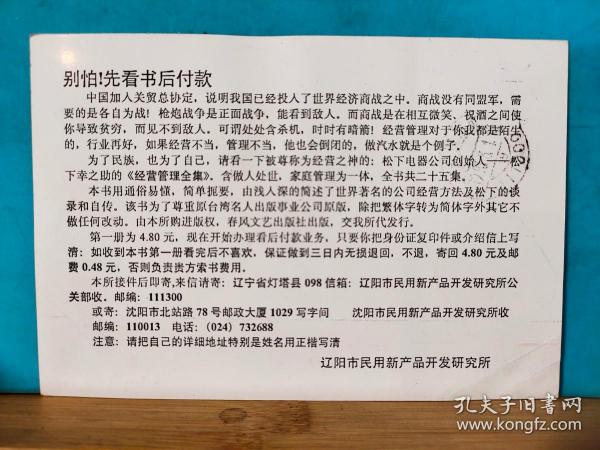 别怕!先看书后付款
中国加人关贸总协定，说明我国已经投人了世界经济商战之中。商战没有同盟军，需
要的是各自为战！枪炮战争是正面战争，能看到敌人。而商战是在相互微笑、祝酒之间使
你导致贫穷，而见不到敌人。可谓处处含杀机，时时有暗箭！经营管理对于你我都是陌生
的，行业再好，如果经营不当，管理不当，他也会倒闭的，做汽水就是个例子。
为了民族，也为了自己，请看一下被尊称为经营之神的：松下电器公司创始人——松
下幸之助的《经营管理全集》。含做人处世，家庭管理为一体，全书共二十五集。
本书用通俗易懂，简单扼要，由浅人深的简述了世界著名的公司经营方法及松下的谈
录和自传。该书为了尊重原台湾名人出版事业公司原版，除把繁体字转为简体字外其它不
做任何改动。由本所购进版权，春风文艺出版社出版，交我所代发行。
第一册为 4.80 元，现在开始办理看后付款业务，只要你把身份证复印件或介绍信上写
清：如收到本书第一册看完后不喜欢，保证做到三日内无损退回，不退，寄回 4.80 元及邮
费 0.48 元，否则负责贵方索书费用。
本所接件后即寄,来信请寄：辽宁省灯塔县 098 信箱：辽阳市民用新产品开发研究所公
关部收。邮编：111300
或寄：沈阳市北站路 78 号邮政大厦 1029 写字间 沈阳市民用新产品开发研究所收
邮编：110013 电话：(024) 732688
注意：请把自己的详细地址特别是姓名用正楷写清
辽阳市民用新产品开发研究所
孔夫子旧书网
www.kongfz.com